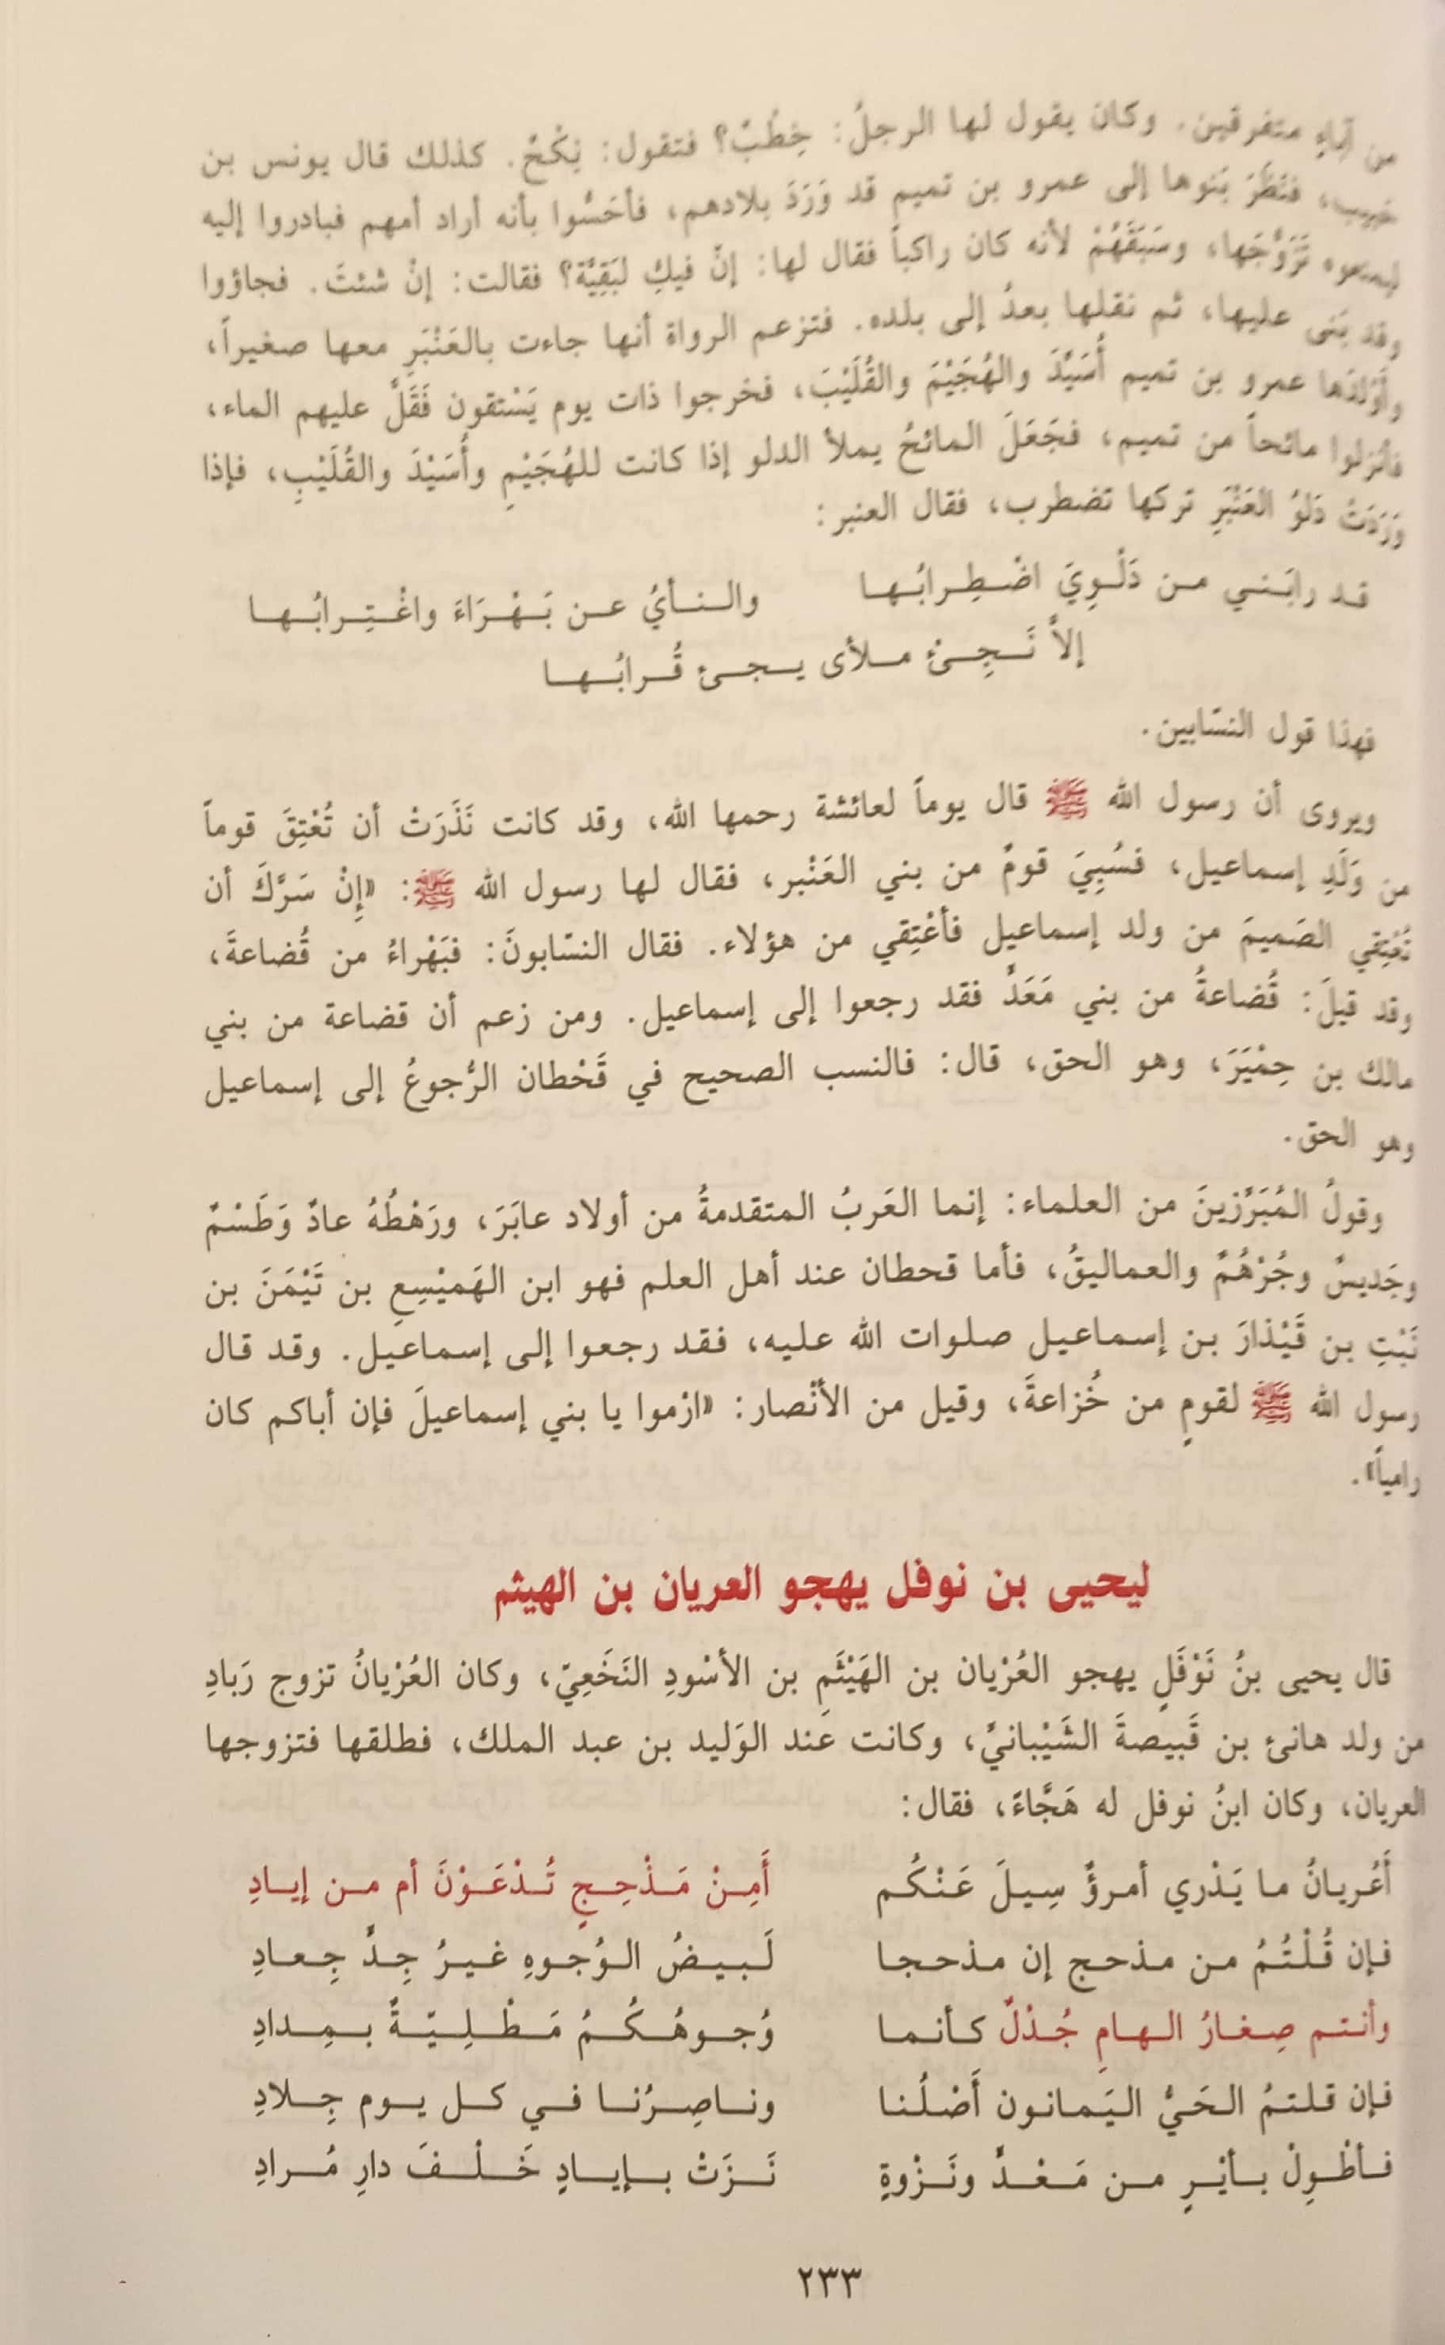 من آباءٍ متفرقين. وكان يقول لها الرجلُ: خِطْبٌ؟ فتقول: نِكْحٌ. كذلك قال يونس بن
حبيب، فنَظَرَ بَنوها إلى عمرو بن تميم قد وَرَدَ بلادهم، فأحَسُّوا بأنه أراد أمهم فبادروا إليه
ليمنعوه تَزَوُّجَها، وسَبَقَهُمْ لأنه كان راكباً فقال لها: إنّ فيكِ لبَقِيَّة؟ فقالت: إنْ شئتَ. فجاؤوا
وقد بَنى عليها، ثم نقلها بعدُ إلى بلده. فتزعم الرواة أنها جاءت بالعَنْبَرِ معها صغيراً،
وأَوْلَدَها عمرو بن تميم أُسَيِّدَ والهُجَيْمَ والقُلَيْبَ، فخرجوا ذات يوم يَسْتقون فَقَلَّ عليهم الماء،
فأنزلوا مائحاً من تميم، فجَعَلَ المائحُ يملأ الدلو إذا كانت للهُجَيْمِ وأُسَيْدَ والقُلَيْبِ، فإذا
وَرَدَتْ دَلوُ العَنْبَرِ تركها تضطرب، فقال العنبر:
قد رابَني من دَلْوِيَ اضْطِرابُها والنأيُ عن بَهْرَاءَ واغْتِرابُها
إلاَّ تَجِئْ ملأى يجئ قُرابُها
فهذا قول النسّابين.
ويروى أن رسول الله ﷺ قال يوماً لعائشة رحمها الله، وقد كانت نَذَرَتْ أن تُعْتِقَ قوماً
من وَلَدِ إسماعيل، فسُبِيَ قومٌ من بني العَنْبر، فقال لها رسول الله ﷺ: «إنْ سَرَّكَ أن
تُعْتِقي الصَميمَ من ولد إسماعيل فأعْتِقي من هؤلاء. فقال النسّابونَ: فبَهْراءُ من قُضاعةَ،
وقد قيلَ: قُضاعةُ من بني مَعَدٍّ فقد رجعوا إلى إسماعيل. ومن زعم أن قضاعة من بني
مالك بن حِمْيَرَ، وهو الحق، قال: فالنسب الصحيح في قَحْطان الرُّجوعُ إلى إسماعيل
وهو الحق.
وقولُ المُبَرِّزينَ من العلماء: إنما العَربُ المتقدمةُ من أولاد عابَرَ، ورَهْطُهُ عادٌ وَطَسْمٌ
وجَديسٌ وجُرْهُمٌ والعماليقُ، فأما قحطان عند أهل العلم فهو ابن الهَميْسِعِ بن تَيْمَنَ بن
نَبْتِ بن قَيْذارَ بن إسماعيل صلوات الله عليه، فقد رجعوا إلى إسماعيل. وقد قال
رسول الله ﷺ لقومٍ من خُزاعةَ، وقيل من الأنْصار: «ارْموا يا بني إسماعيلَ فإن أباكم كان
رامياً».
ليحيى بن نوفل يهجو العريان بن الهيثم
قال يحيى بنُ نَوْفَلٍ يهجو العُرْيان بن الهَيْثَمِ بن الأسْودِ النَخَعِيّ، وكان العُرْيانُ تزوج رَبادِ
من ولد هانئ بن قَبيصةَ الشَيْبانيِّ، وكانت عند الوَليد بن عبد الملك، فطلقها فتزوجها
العريان، وكان ابنُ نوفل له هَجَّاءً، فقال:
أَعُريانُ ما يَدْري أمرؤٌ سِيلَ عَنْكُم أَمِنْ مَذْحِجٍ تُدْعَوْنَ أم من إيادِ
فإن قُلْتُمُ من مذحج إن مذحجا لَبيضُ الوُجوهِ غيرُ جِدِّ جِعادِ
وأنتم صِغارُ الهامِ جُدْلٌ كأنما وُجوهُكُمُ مَطْلِيّةٌ بمِدادِ
فإن قلتمُ الحَيُّ اليَمانون أَصْلُنا وناصِرُنا في كل يوم جِلادِ
فأطْوِلْ بأيْرٍ من مَعْدٍّ ونَزْوةٍ نَزَتْ بإيادٍ خَلْفَ دارِ مُرادِ
٢٣٣